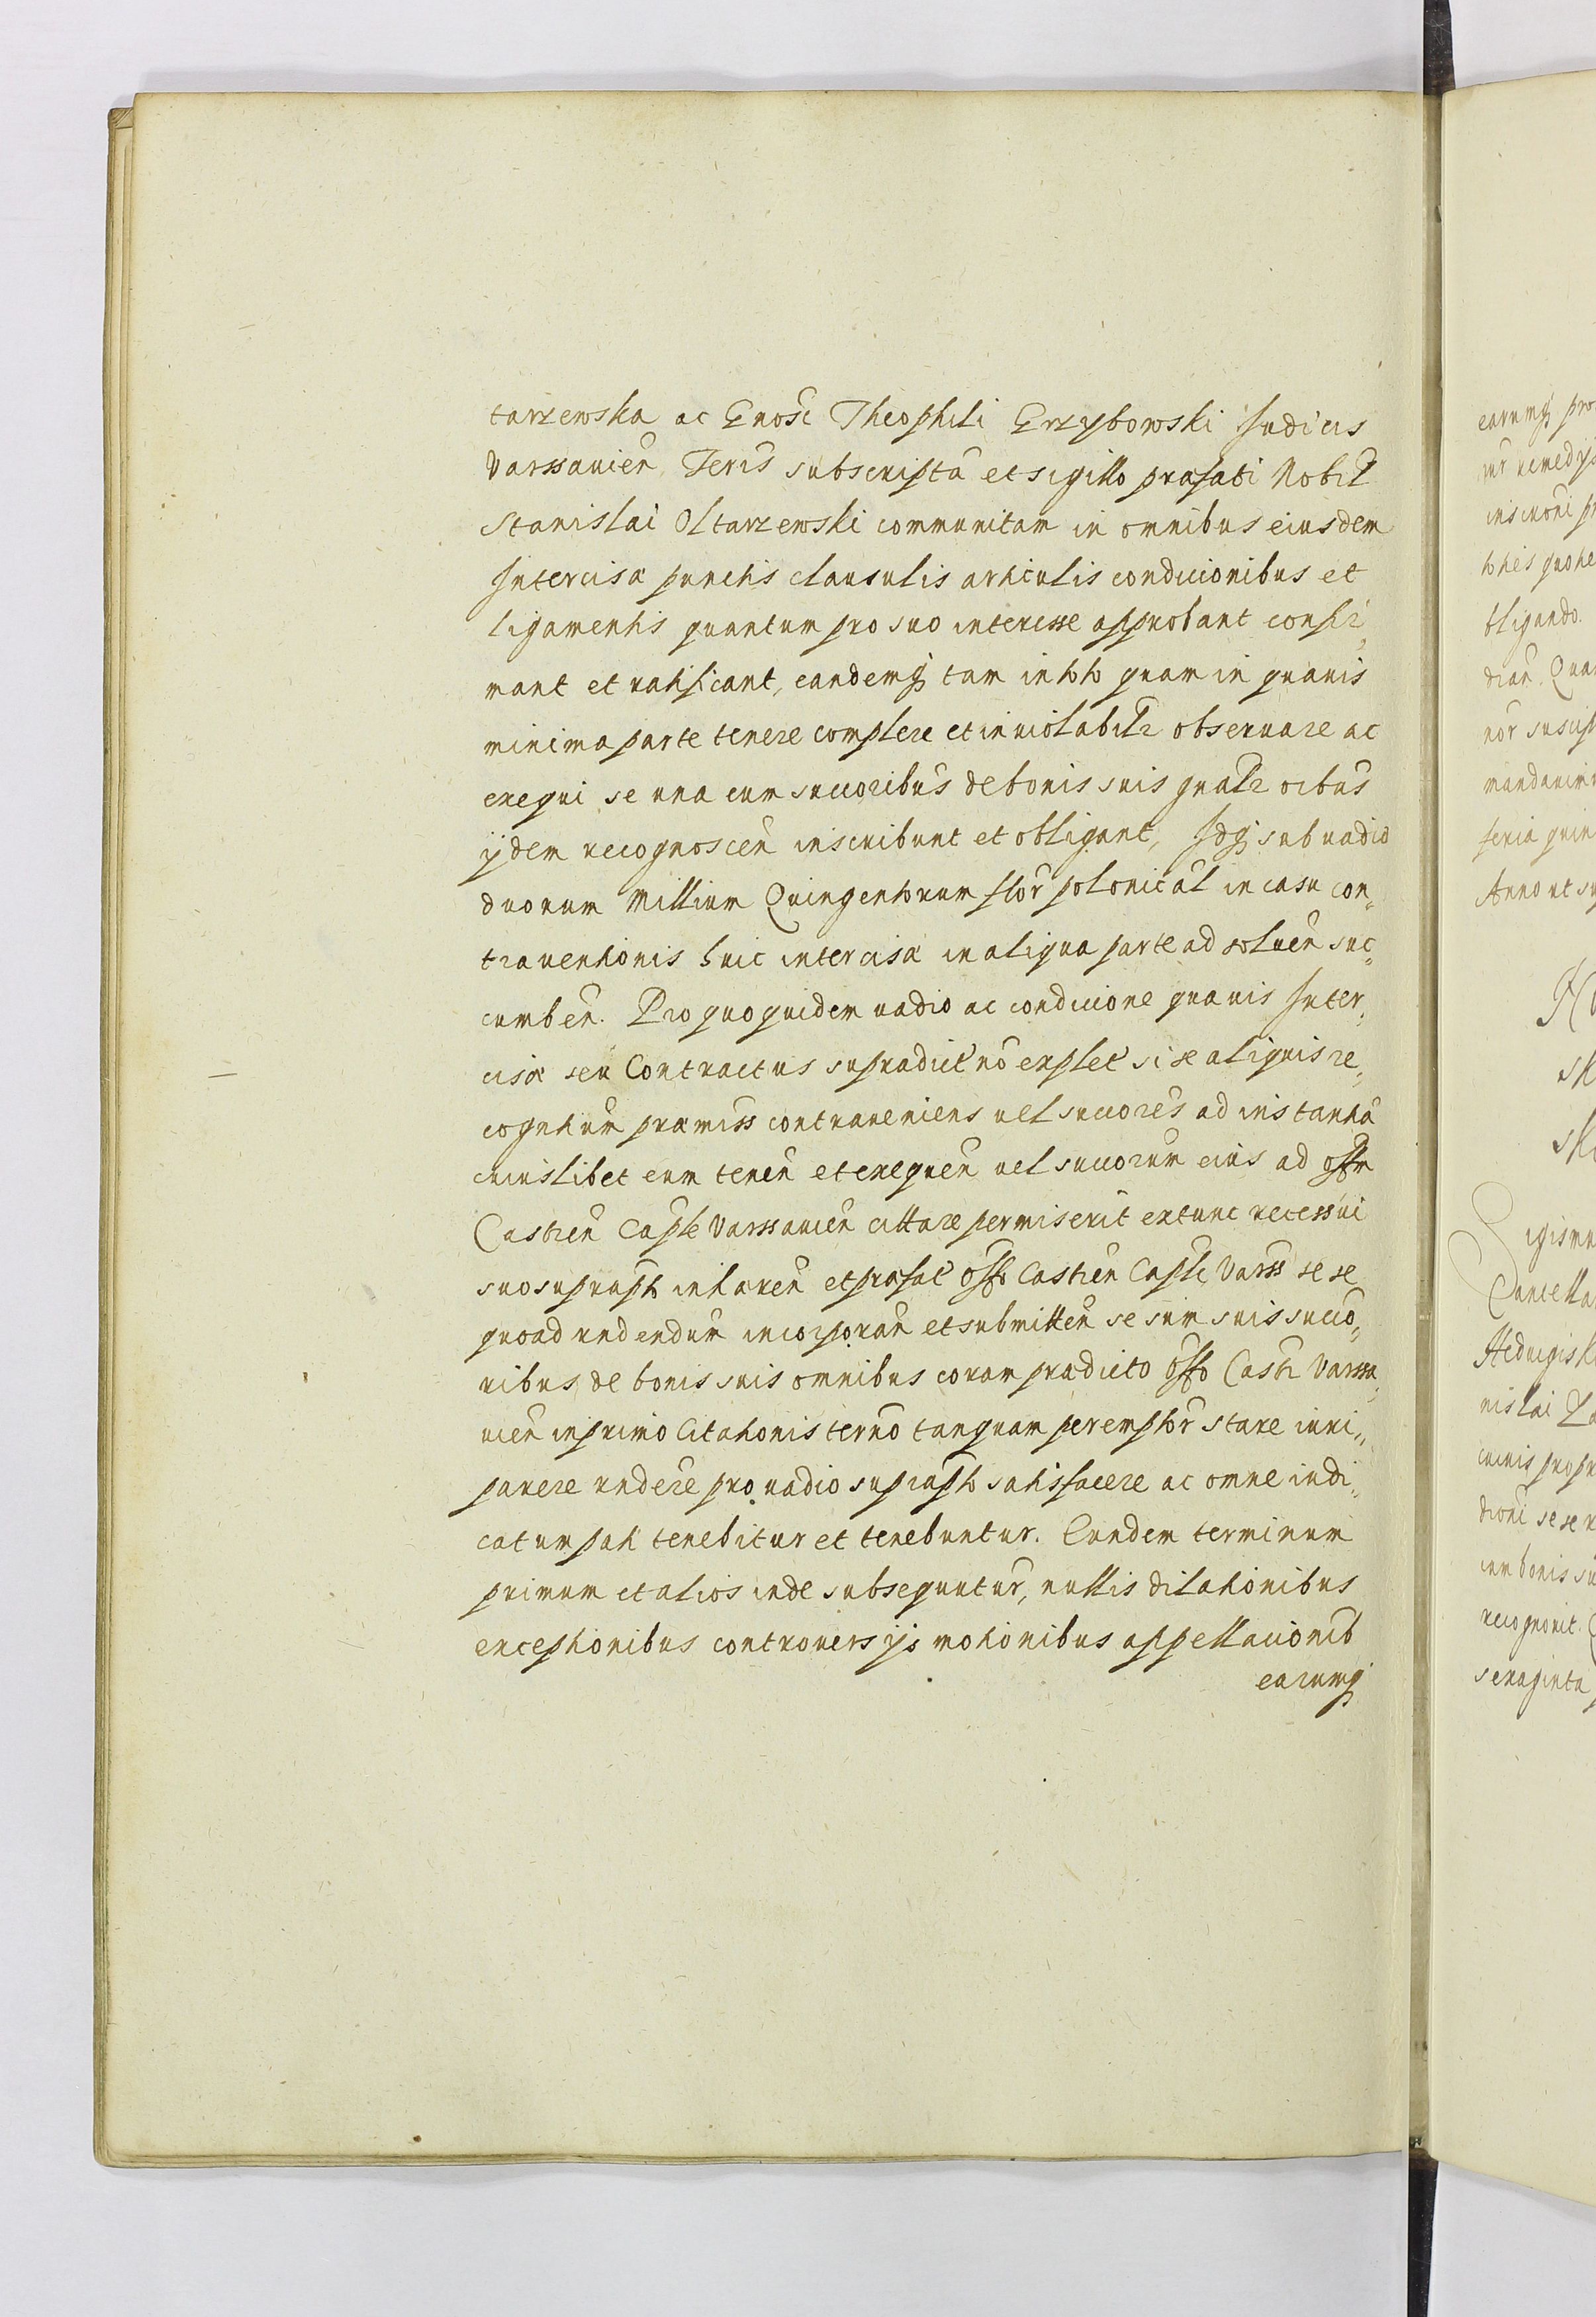 tarzewska ac Gnosi Theophili Grzybowski Judicis
Varssavien Terris subscripta et sigillo præfati Nobil
Stanislai Oltarzewski communitam in omnibus eiusdem
Intercisæ punctis clausulis articulis condicionibus et
ligamentis quantum pro suo interesse approbant confir„
mant et ratificant, eandemq tam in toto quam in quavis
minima parte tenere complere et inviolabilr observare ac
exequi se una cum succoribus de bonis suis gnalr oibus
ijdem recognoscen inscribunt et obligant, Idq sub vadio
duorum Millium Quingentorum flor polonical in casu con„
traventionis huic intercisæ in aliqua parte ad solven suc„
cumben. Pro quo quidem vadio ac condicione quavis Inter„
cisæ seu Contractus supradict no explet si se aliquis re„
cogntium præmiss contraveniens vel succores ad instantia
cuiuslibet eum tenen et exequen vel succorum eius ad offm
Castren Caple Varssavien cittare permiserit extunc recessui
suo suprapto inhæren et præfat Offo Castren Capli Varss se se
quoad rndendum incorporan et submitten se cum suis succo„
ribus de bonis suis omnibus coram prædicto Offo Castr Varssa„
vien in primo Citationis terno tanquam peremptor stare iuri„
parere rndere pro vadio suprapto satisfacere ac omne iudi„
catum pati tenebitur et tenebuntur. Eundem terminum
primum et alios inde subsequntur, nullis dilationibus
exceptionibus controversijs motionibus appellationib
earumq
earumq pro
iur remedys
inscrioni pr
obligando.
dian. Quar
nor suscip
mandavim
feria quin
Anno ut su
sk
igismu
Cancella
Hedvigis
nislai
cuius propr
dioni se se
cum bonis su
recognovit.
sexaginta